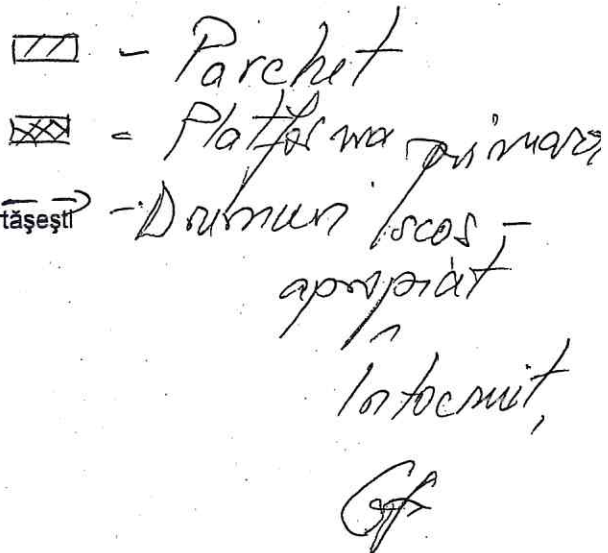 - Parchet
= Platforma primara
tășești - Drumuri scos -
apropiat
Întocmit,